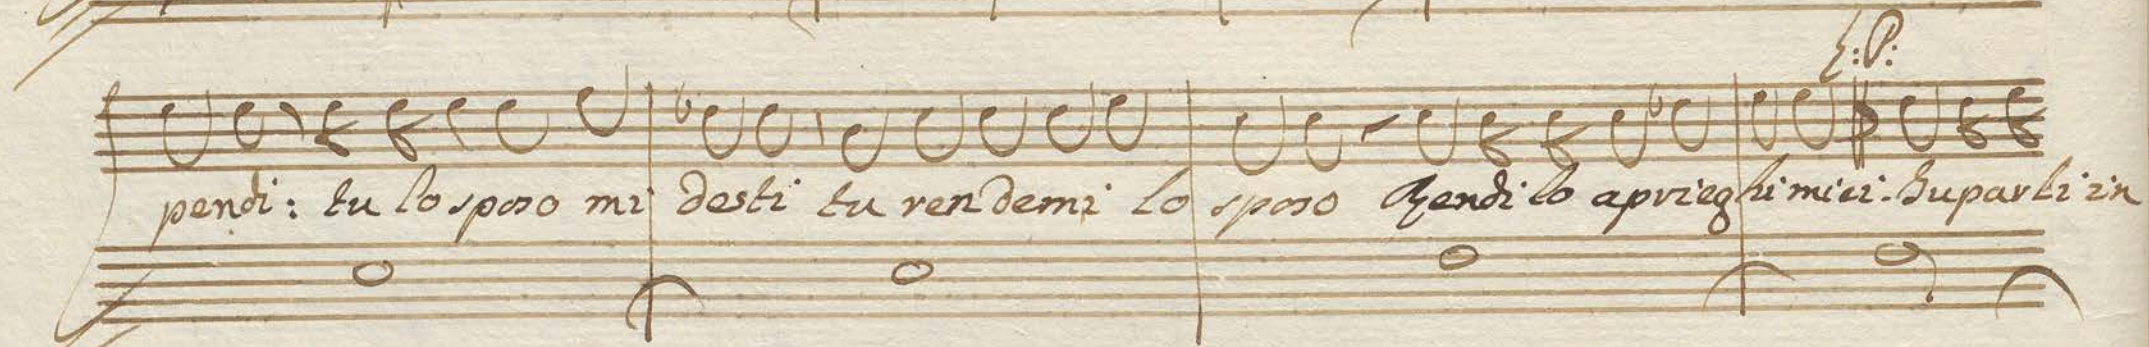 L: P:
pendi: tu lo sposo mi desti tu rendemi lo sposo Rendi lo a prieghi miei. Su parti in